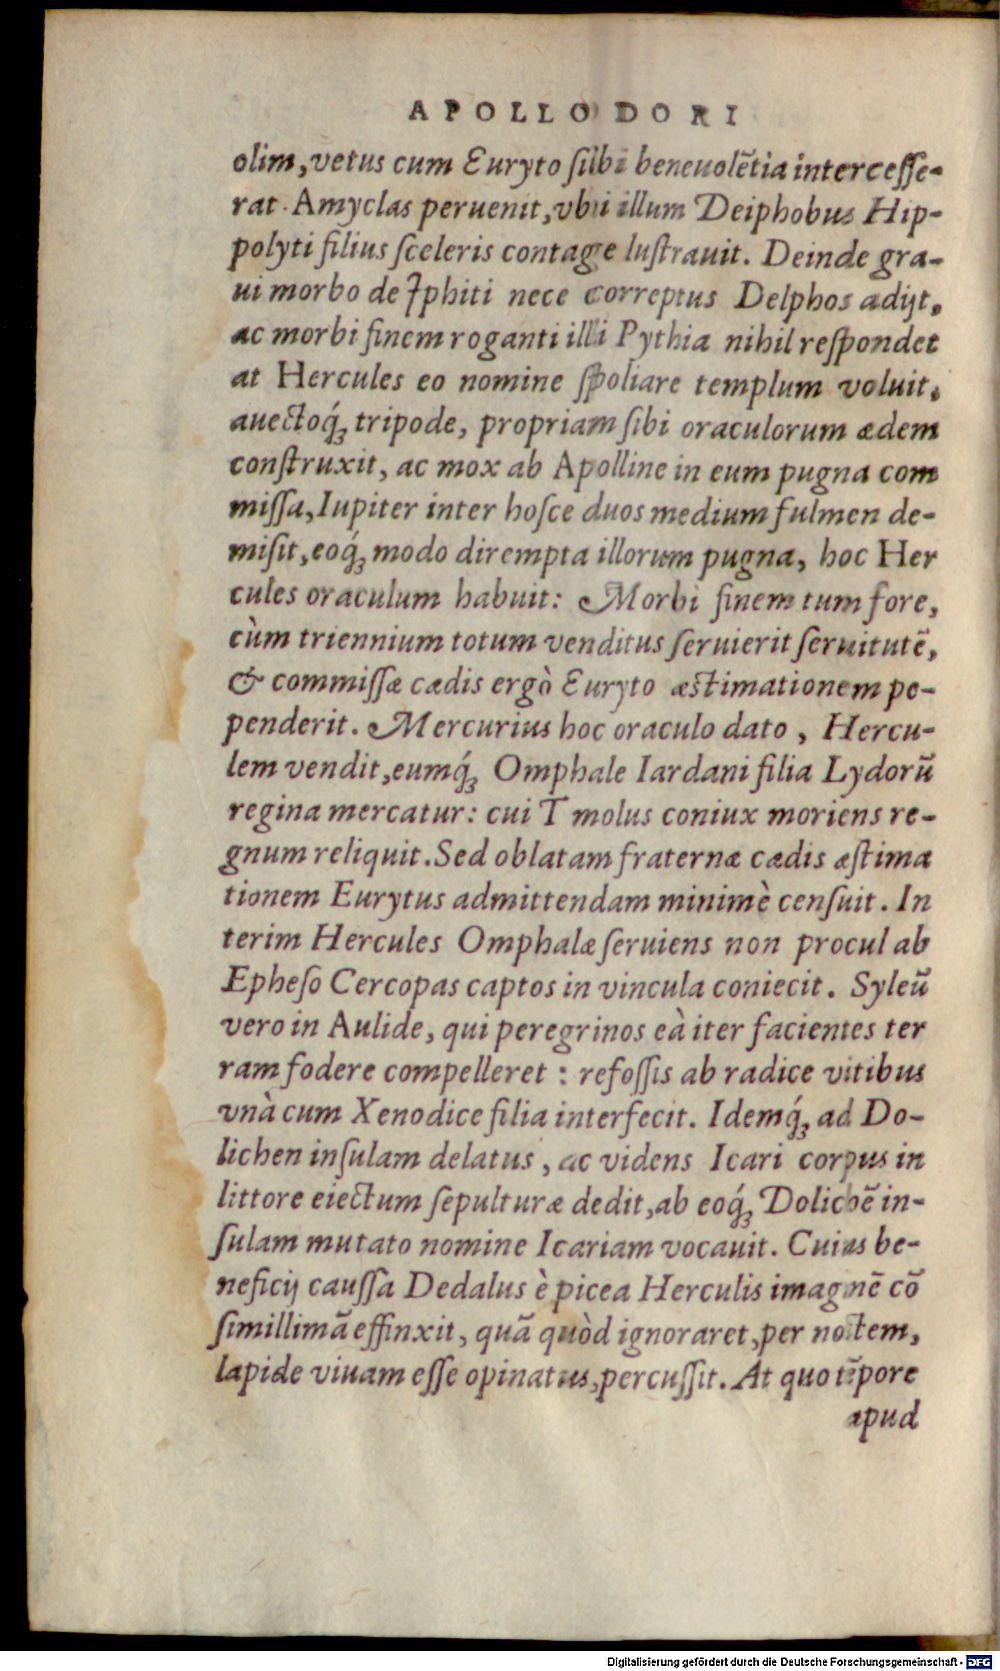 APOLLODORI
olim, vetus cum Euryto sibi beneuolẽtia intercesse-
rat. Amyclas peruenit, vbi illum Deiphobus Hip-
polyti filius sceleris contage lustrauit. Deinde gra-
ui morbo de Iphiti nece correptus Delphos adijt,
ac morbi finem roganti illi Pythia nihil respondet
at Hercules eo nomine spoliare templum voluit,
auectoq́; tripode, propriam sibi oraculorum ædem
construxit, ac mox ab Apolline in eum pugna com
missa, Iupiter inter hosce duos medium fulmen de-
misit, eoq́; modo dirempta illorum pugna, hoc Her
cules oraculum habuit: Morbi finem tum fore,
cùm triennium totum venditus seruierit seruitutẽ,
& commissæ cædis ergò Euryto æstimationem pe-
penderit. Mercurius hoc oraculo dato, Hercu-
lem vendit, eumq́; Omphale Iardani filia Lydorũ
regina mercatur: cui T molus coniux moriens re-
gnum reliquit. Sed oblatam fraternæ cædis æstima
tionem Eurytus admittendam minimè censuit. In
terim Hercules Omphalæ seruiens non procul ab
Epheso Cercopas captos in vincula coniecit. Syleũ
vero in Aulide, qui peregrinos eà iter facientes ter
ram fodere compelleret: refossis ab radice vitibus
vnà cum Xenodice filia interfecit. Idemq́; ad Do-
lichen insulam delatus, ac videns Icari corpus in
littore eiectum sepulturæ dedit, ab eoq́; Dolichẽ in-
sulam mutato nomine Icariam vocauit. Cuius be-
neficij caussa Dedalus è picea Herculis imaginẽ cõ
simillimã effinxit, quã quòd ignoraret, per noctem,
lapide viuam esse opinatus, percussit. At quo tẽpore
apud
Digitalisierung gefördert durch die Deutsche Forschungsgemeinschaft - DFG